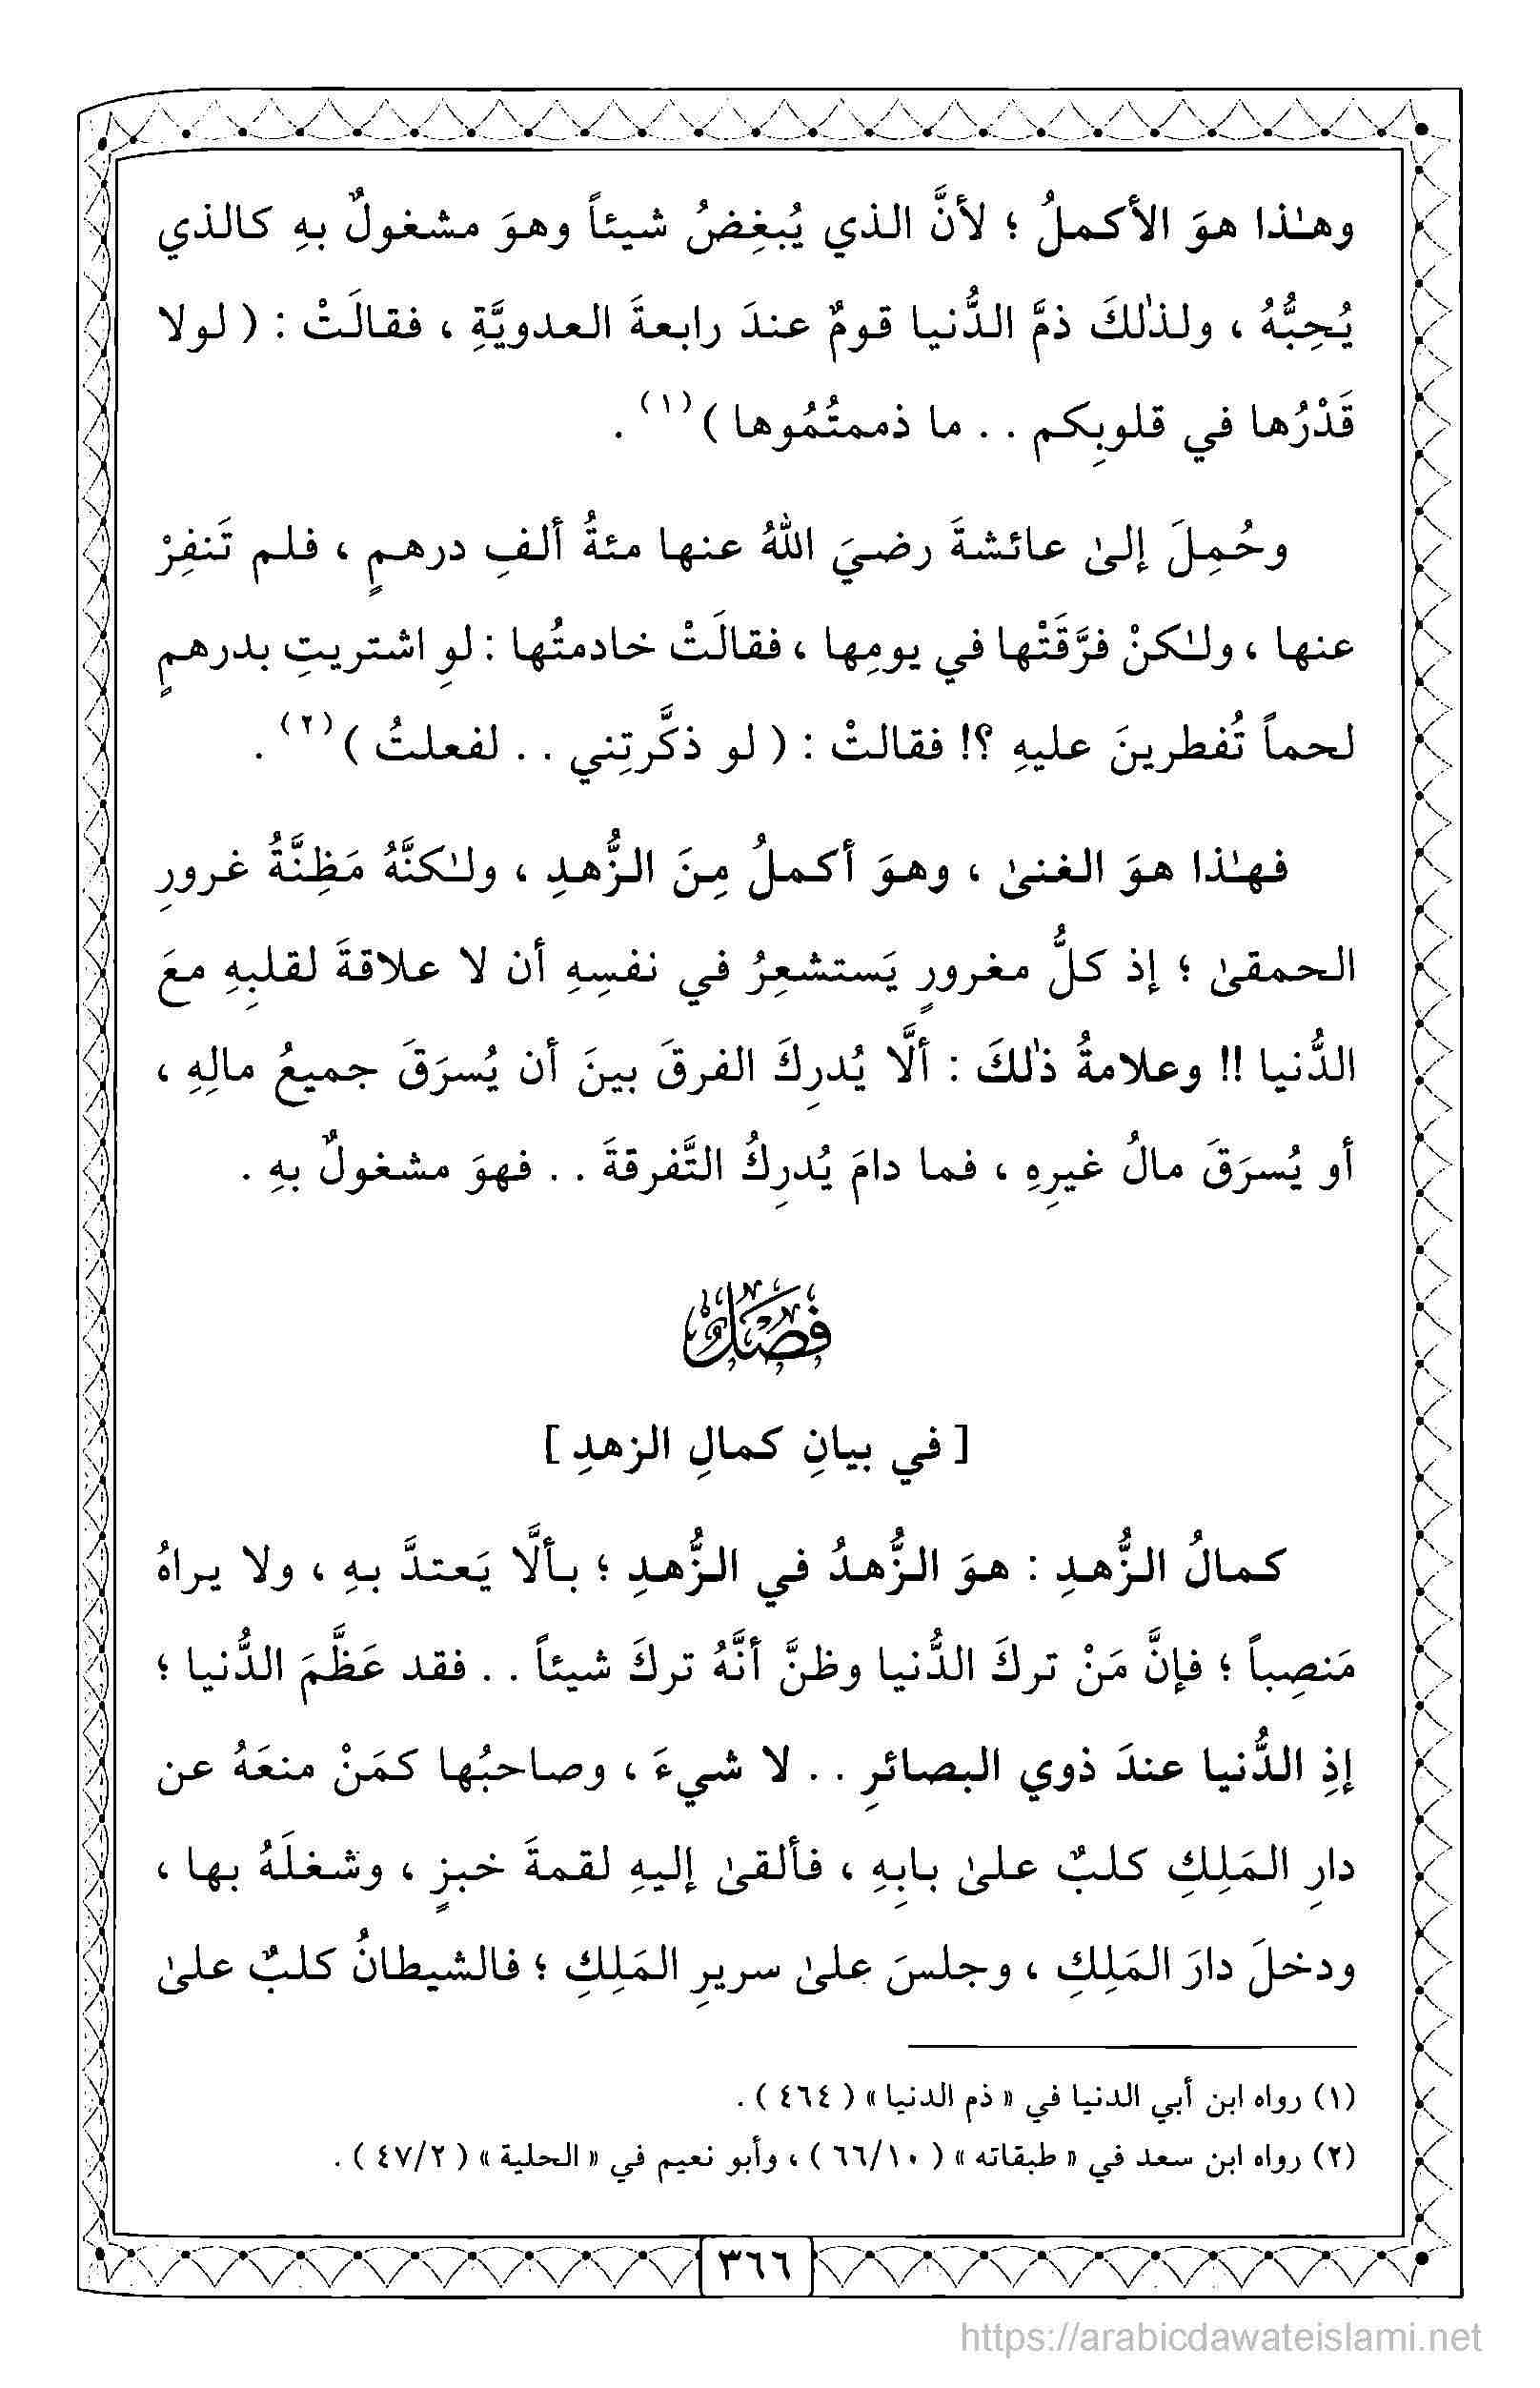 وهـٰذا هوَ الأكملُ ؛ لأنَّ الذي يُبغِضُ شيئاً وهوَ مشغولٌ بهِ كالذي
يُحِبُّهُ ، ولذٰلكَ ذمَّ الدُّنيا قومٌ عندَ رابعةَ العدويَّةِ ، فقالَتْ : ( لولا
قَدْرُها في قلوبِكم . . ما ذممتُمُوها )(١) .
وحُمِلَ إلىٰ عائشةَ رضيَ اللهُ عنها مئةُ ألفِ درهمٍ ، فلم تَنفِرْ
عنها ، ولـٰكنْ فرَّقَتْها في يومِها ، فقالَتْ خادمتُها : لوِ اشتريتِ بدرهمٍ
لحماً تُفطرينَ عليهِ ؟! فقالتْ : ( لو ذكَّرتِني . . لفعلتُ )(٢) .
فهـٰذا هوَ الغنىٰ ، وهوَ أكملُ مِنَ الزُّهدِ ، ولـٰكنَّهُ مَظِنَّةُ غرورِ
الحمقىٰ ؛ إذ كلُّ مغرورٍ يَستشعِرُ في نفسِهِ أن لا علاقةَ لقلبِهِ معَ
الدُّنيا !! وعلامةُ ذٰلكَ : ألَّا يُدرِكَ الفرقَ بينَ أن يُسرَقَ جميعُ مالِهِ ،
أو يُسرَقَ مالُ غيرِهِ ، فما دامَ يُدرِكُ التَّفرقةَ . . فهوَ مشغولٌ بهِ .
فَصْلٌ
[ في بيانِ كمالِ الزهدِ ]
كمالُ الزُّهدِ : هوَ الزُّهدُ في الزُّهدِ ؛ بألَّا يَعتدَّ بهِ ، ولا يراهُ
مَنصِباً ؛ فإنَّ مَنْ تركَ الدُّنيا وظنَّ أنَّهُ تركَ شيئاً . . فقد عَظَّمَ الدُّنيا ؛
إذِ الدُّنيا عندَ ذوي البصائرِ . . لا شيءَ ، وصاحبُها كمَنْ منعَهُ عن
دارِ المَلِكِ كلبٌ علىٰ بابِهِ ، فألقىٰ إليهِ لقمةَ خبزٍ ، وشغلَهُ بها ،
ودخلَ دارَ المَلِكِ ، وجلسَ علىٰ سريرِ المَلِكِ ؛ فالشيطانُ كلبٌ علىٰ
(١) رواه ابن أبي الدنيا في « ذم الدنيا » ( ٤٦٤ ) .
(٢) رواه ابن سعد في « طبقاته » ( ٦٦/١٠ ) ، وأبو نعيم في « الحلية » ( ٤٧/٢ ) .
٣٦٦
https://arabicdawateislami.net